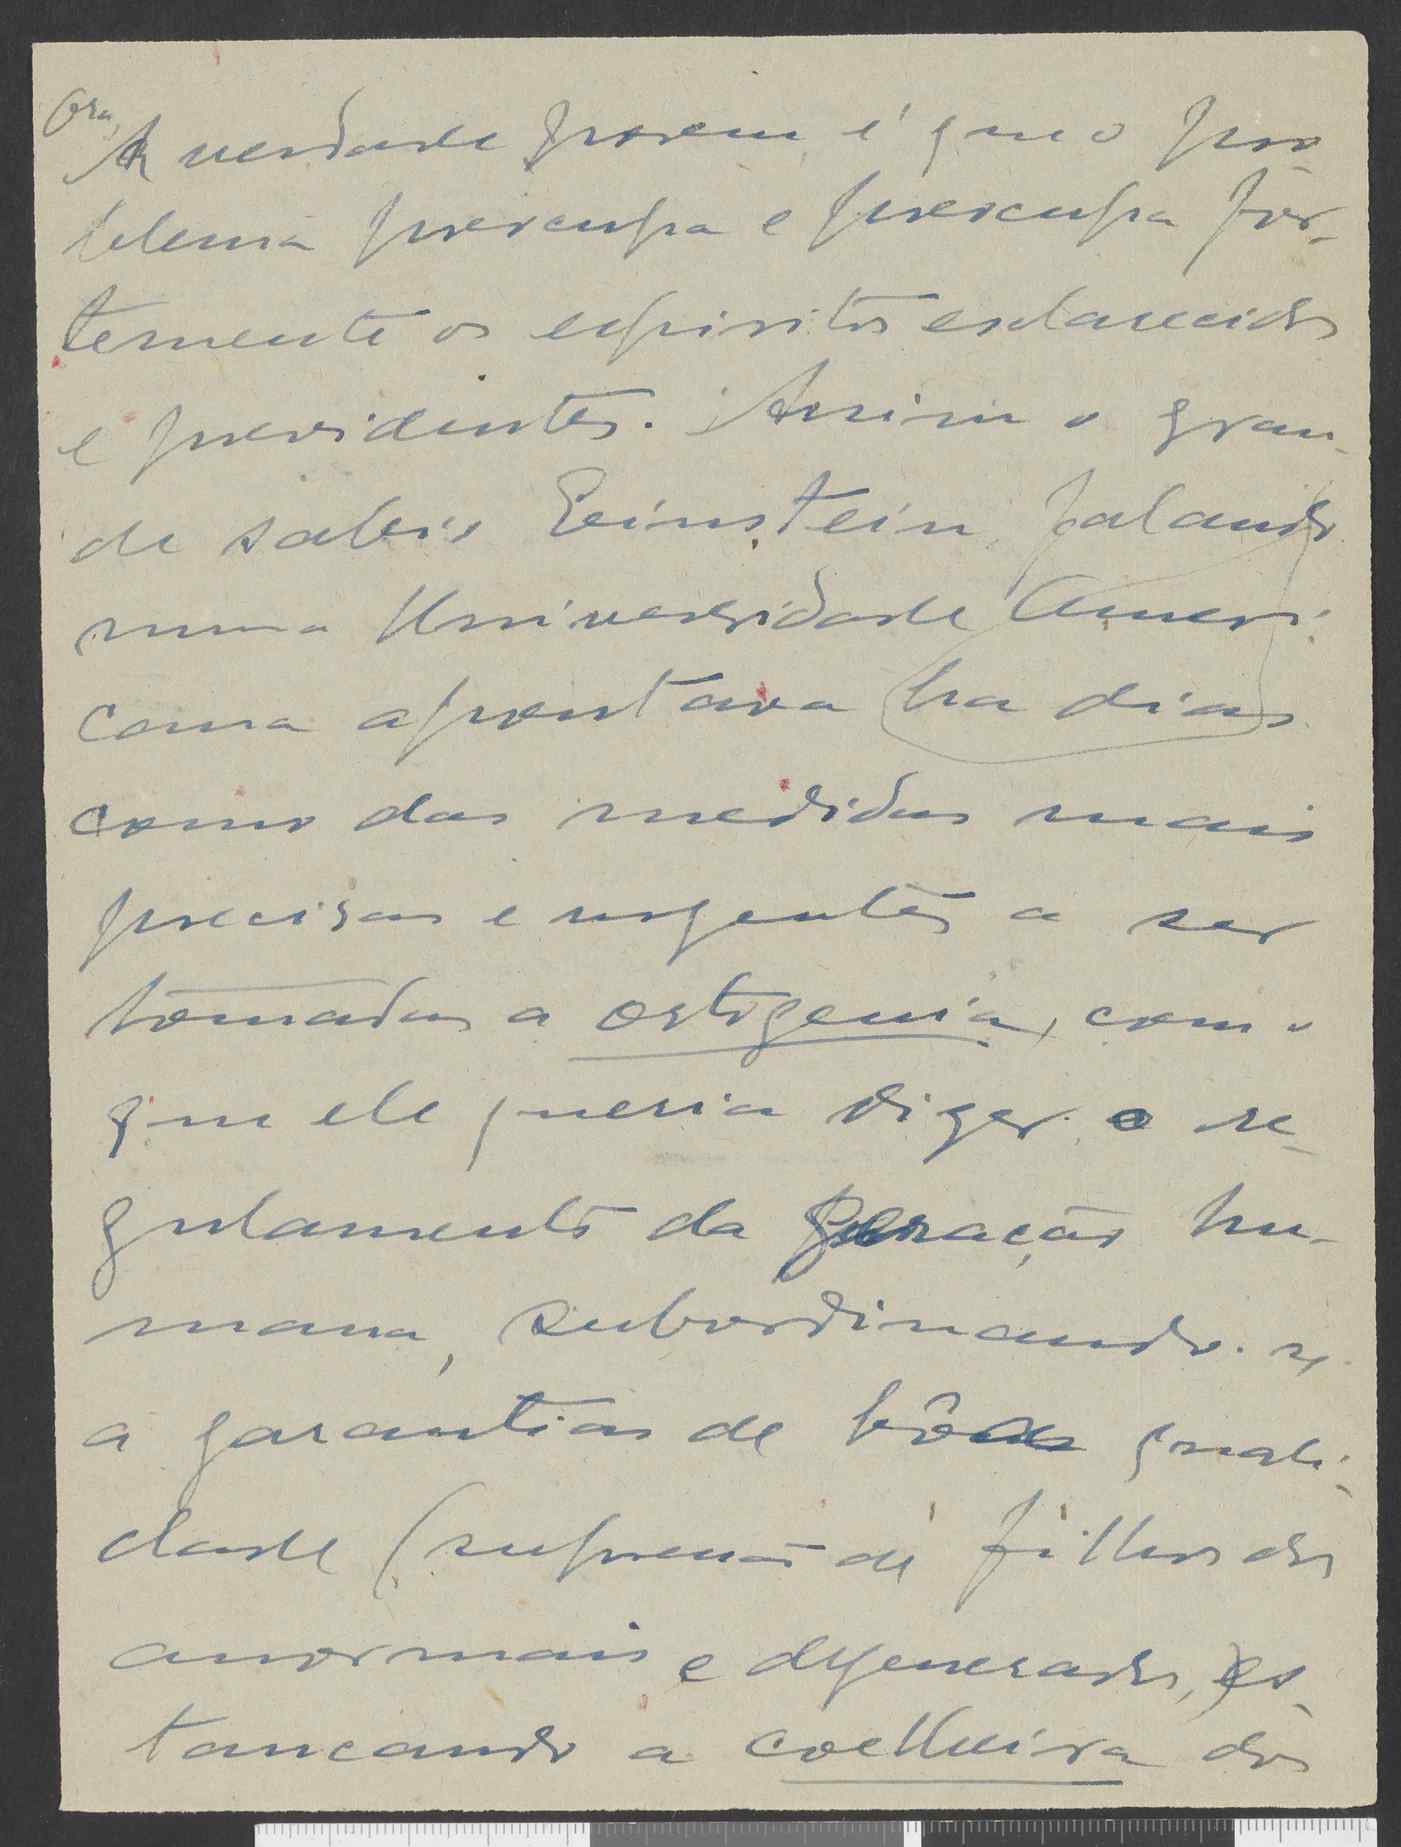 Ora,
A verdade porem é que o pro-
blema preocupa e preocupa for-
temente os espiritos esclarecidos
e previdentes. Assim o gran-
de sabio Einstein, falando
numa Universidade Ameri-
cana apontava ha dias
como das medidas mais
precisas e urgentes a ser
tomadas a ortogenia, com o
que ele queria dizer o re-
gulamento da geração hu-
mana, subordinando-se
a garantias de bôa quali-
dade (supressão de filhos dos
anormais e degenerados, es-
tancando a coelheira dos